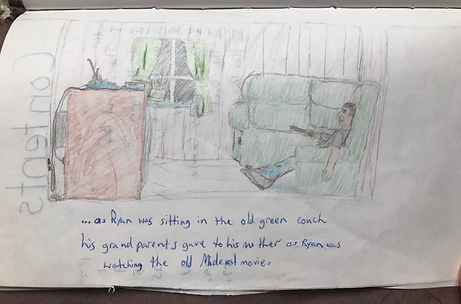 Contents
... as Ryan was sitting in the old green couch
his grandparents gave to his mother as Ryan was
watching the old movie.